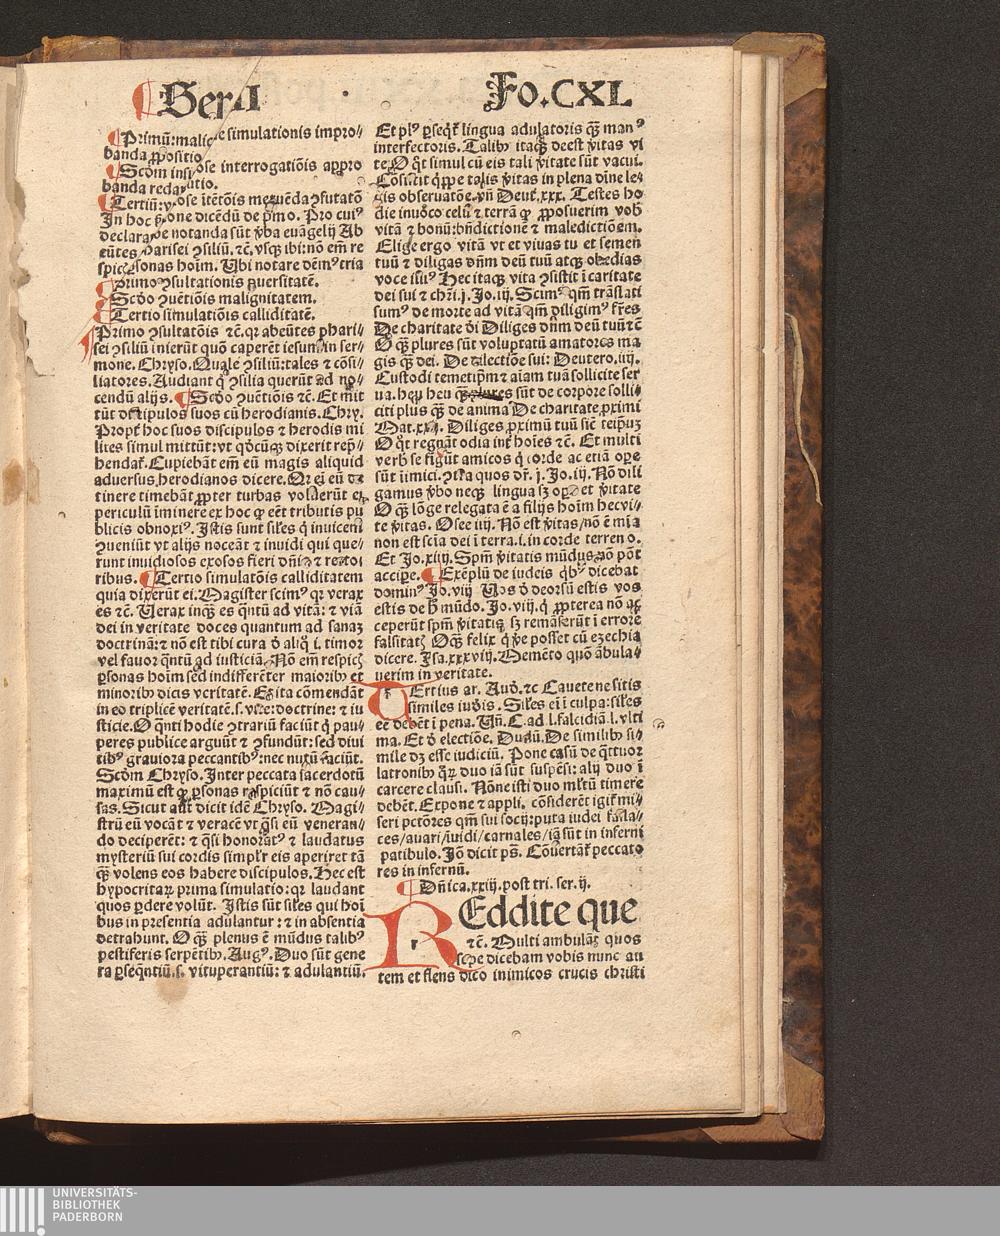 Ser II
Fo.CXL
Primū:malicie simulationis impro⸗
banda ꝓpositio
Scd̄m insi ose interrogatiōis appro
banda redar utio.
Tertiū:v ose ītētōis me uēda ꝯfutatō
In hoc one dicēdū de pͥmo. Pro cuiꝰ
declara notanda sūt v̄ba euāgelij Ab
eūtes pharisei ꝯsiliū.ꝛc.vsqꝫ ibi:nō em̄ re
spic sonas hoīm. Ubi notare dēmꝰ tria
primo ꝯsultationis ꝑuersitatē.
Scdo ꝯuētiōis malignitatem.
Tertio simulatiōis calliditatē.
Primo ꝯsultatōis ꝛc.qꝛ abeūtes phari⸗
sei ꝯsiliū inierūt quō caperēt iesum in ser⸗
mone. Chryso. Quale ꝯsiliū:tales ⁊ cōsi⸗
liatores. Audiant q̄ ꝯsilia querūt ad no⸗
cendū alijs. Scdo ꝯuētiōis ꝛc. Et mit
tūt discipulos suos cū herodianis. Chry.
Propt̄ hoc suos discipulos ⁊ herodis mi
lites simul mittūt:vt qd̄cūqꝫ dixerit rep̄⸗
hendat̄. Cupiebāt em̄ eū magis aliquid
aduersus herodianos dicere. Qꝛ eī eū de
tinere timebāt ꝓpter turbas voluerūt ei
periculū iminere ex hoc ꝙ eēt tributis pu
blicis obnoxiꝰ. Isti sunt siles q̄ inuicem
ꝯueniūt vt alijs noceāt ⁊ inuidi qui que⸗
runt inuidiosos exosos fieri dn̄is ⁊ recto
ribus. Tertio simulatōis calliditatem
quia dixerūt ei. Magister scimꝰ qꝛ verax
es ꝛc. Uerax inqꝫ es q̄ntū ad vitā: ⁊ viā
dei in veritate doces quantum ad sanaꝫ
doctrinā:⁊ nō est tibi cura d̄ aliq̄ i. timor
vel fauor q̄ntū ad iusticiā. Nō em̄ respicis
ꝑsonas hoīm sed indifferēter maioribꝰ et
minoribꝰ dicis veritatē. Et ita cōmendāt
in eo triplicē veritatē.s.vite:doctrine: ⁊ iu
sticie. O q̄nti hodie ꝯtrariū faciūt q̄ pau⸗
peres publice arguūt ⁊ ꝯfundūt:sed diui
tibꝰ grauiora peccantibꝰ:nec nutū faciūt.
Scd̄m Chryso. Inter peccata sacerdotū
maximū est ꝙ ꝑsonas respiciūt ⁊ nō cau⸗
sas. Sicut aūt dicit idē Chryso. Magi⸗
strū eū vocāt ⁊ veracē vt q̄si eū veneran⸗
do deciperēt: ⁊ q̄si honoratꝰ ⁊ laudatus
mysteriū sui cordis simplr̄ eis aperiret tā
q̄ꝫ volens eos habere discipulos. Hec est
hypocritaꝝ prima simulatio:qꝛ laudant
quos ꝑdere volūt. Istis sūt siles qui hoī
bus in presentia adulantur : ⁊ in absentia
detrahunt. O q̄ꝫ plenus ē mūdus talibꝰ
pestiferis serpētibꝰ. Augꝰ. Duo sūt gene
ra ꝑseq̄ntiū.s. vituperantiū: ⁊ adulantiū.
Et plꝰ ꝑseqt̄ lingua adulatoris q̄ꝫ manꝰ
interfectoris. Talibꝰ itaqꝫ deest v̄itas vi
te. O q̄t simul cū eis tali v̄itate sūt vacui.
Cōsistit q̄ppe talis v̄itas in plena dīne le⸗
gis obseruatōe. vn̄ Deut̄.xxx. Testes ho
die inuoco celū ⁊ terrā ꝙ ꝓposuerim vob̄
vitā ⁊ bonū:bn̄dictionē ⁊ maledictiōem.
Elige ergo vitā vt et viuas tu et semen
tuū ⁊ diligas dn̄m deū tuū atqꝫ obedias
voce illiꝰ Hec itaqꝫ vita ꝯsistit ī caritate
dei sui ⁊ chr̄i.j. Jo.iij. Scimꝰ qm̄ trāslati
sumꝰ de morte ad vitā qm̄ diligimꝰ fr̄es
De charitate d̄i Diliges dn̄m deū tuū ꝛc̄
O q̄ꝫ plures sūt voluptatū amatores ma
gis q̄ꝫ dei. De dilectiōe sui: Deutero.iiij.
Custodi temetip̄m ⁊ aīam tuā sollicite ser
ua.heu heu q̄ꝫ plures sūt de corpore solli⸗
citi plus q̄ꝫ de anima De charitate ꝓximi
Mat.xxij. Diliges ꝓximū tuū sic̄ teip̄uꝫ
O q̄t regnāt odia int̄ hoīes ꝛc. Et multi
verb̄ se figūt amicos q̄ corde ac etiā ope
sūt inīmici. ꝯtra quos dr̄. j. Jo.iij. Nō dili
gamus v̄bo neqꝫ lingua sꝫ oꝑe et v̄itate
O q̄ꝫ lōge relegata ē a filijs hoīm hec vi⸗
te v̄itas. Osee iiij. Nō est v̄itas/nō ē mīa
non est scīa dei ī terra.i.in corde terreno.
Et Jo.xiiij. Spm̄ v̄itatis mūdus nō pōt
accipe. Exēplū de iudeis qbꝰ dicebat
dominꝰ Jo.viij Uos d̄ deorsū estis vos
estis de h̄ mūdo. Jo.viij.q̄ ꝓpterea nō ac
ceperūt spm̄ v̄itatis sꝫ remāserūt ī errore
falsitatꝭ O q̄ꝫ felix q̄ v̄e posset cū ezechia
dicere. Isa.xxxviij. Memēto quō ābula⸗
uerim in veritate.
TErtius ar. Aud̄.ꝛc Cauete ne sitis
similes iud̄is. Siles eī ī culpa:siles
eē debēt ī pena. Un̄. C.ad l.falcidiā l. vlti
ma. Et d̄ electiōe. Dudū. De similibꝰ si⸗
mile dꝫ esse iudiciū. Pone casū de q̄ttuor
latronibꝰ q̄ꝝ duo iā sūt suspēsi: alij duo ī
carcere clausi. Nōne isti duo mltū timere
debēt. Expone ⁊ appli. cōsiderēt igit̄ mi⸗
seri pctōres qm̄ sui socij:puta iudei falla⸗
ces/auari/īuidi/carnales/iā sūt in inferni
patibulo. Jō dicit ps̄. Cōuertāt̄ peccato
res in infernū.
Dn̄ica.xxiij.post tri. ser.ij.
REddite que
ꝛc̄. Multi ambulāt quos
sepe dicebam vobis nunc au
tem et flens dico inimicos crucis christi
UNIVERSITÄTS-
BIBLIOTHEK
PADERBORN